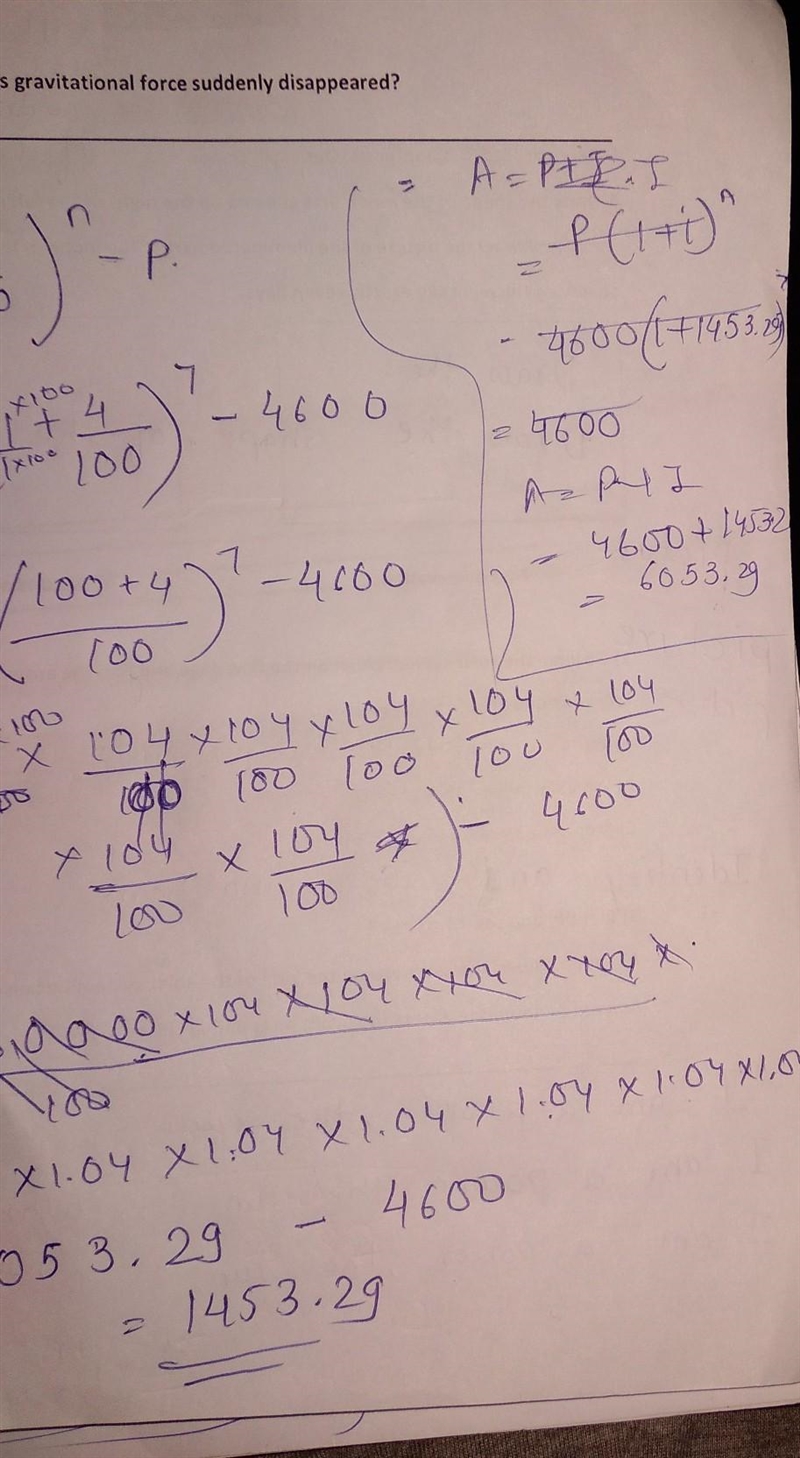 s gravitational force suddenly disappeared?
)ⁿ - P.
1×100/1×100 + 4/100)⁷ - 4600
(100+4/100)⁷ - 4600
× 104/100 × 104/100 × 104/100 × 104/100 × 104/100
× 104/100 × 104/100 ) - 4600
×104 ×104 ×104 ×104 ×
100
×1.04 ×1.04 ×1.04 ×1.04 ×1.04 ×1.0
053.29 - 4600
= 1453.29
= A = P . I
= P(1+i)ⁿ
- 4600(1+1453.29)
= 4600
A = P+I
= 4600+14532
= 6053.29